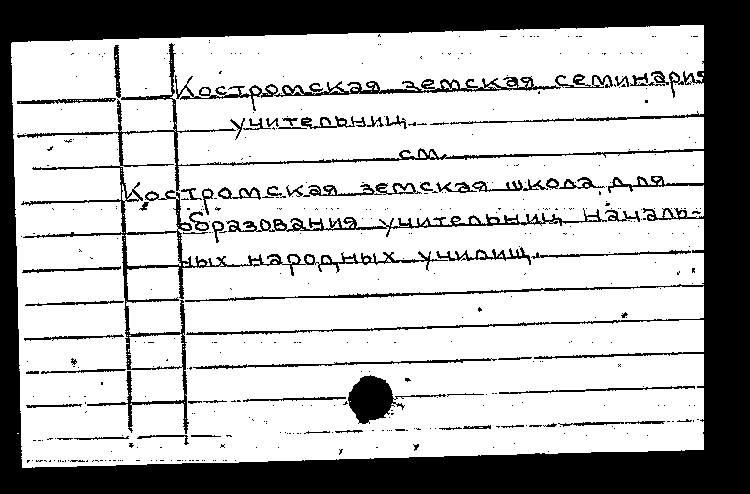 Костромская земская семинария
учительниц.
см.
Костромская земская школа для
образования учительниц началь-
ных народных училищ.